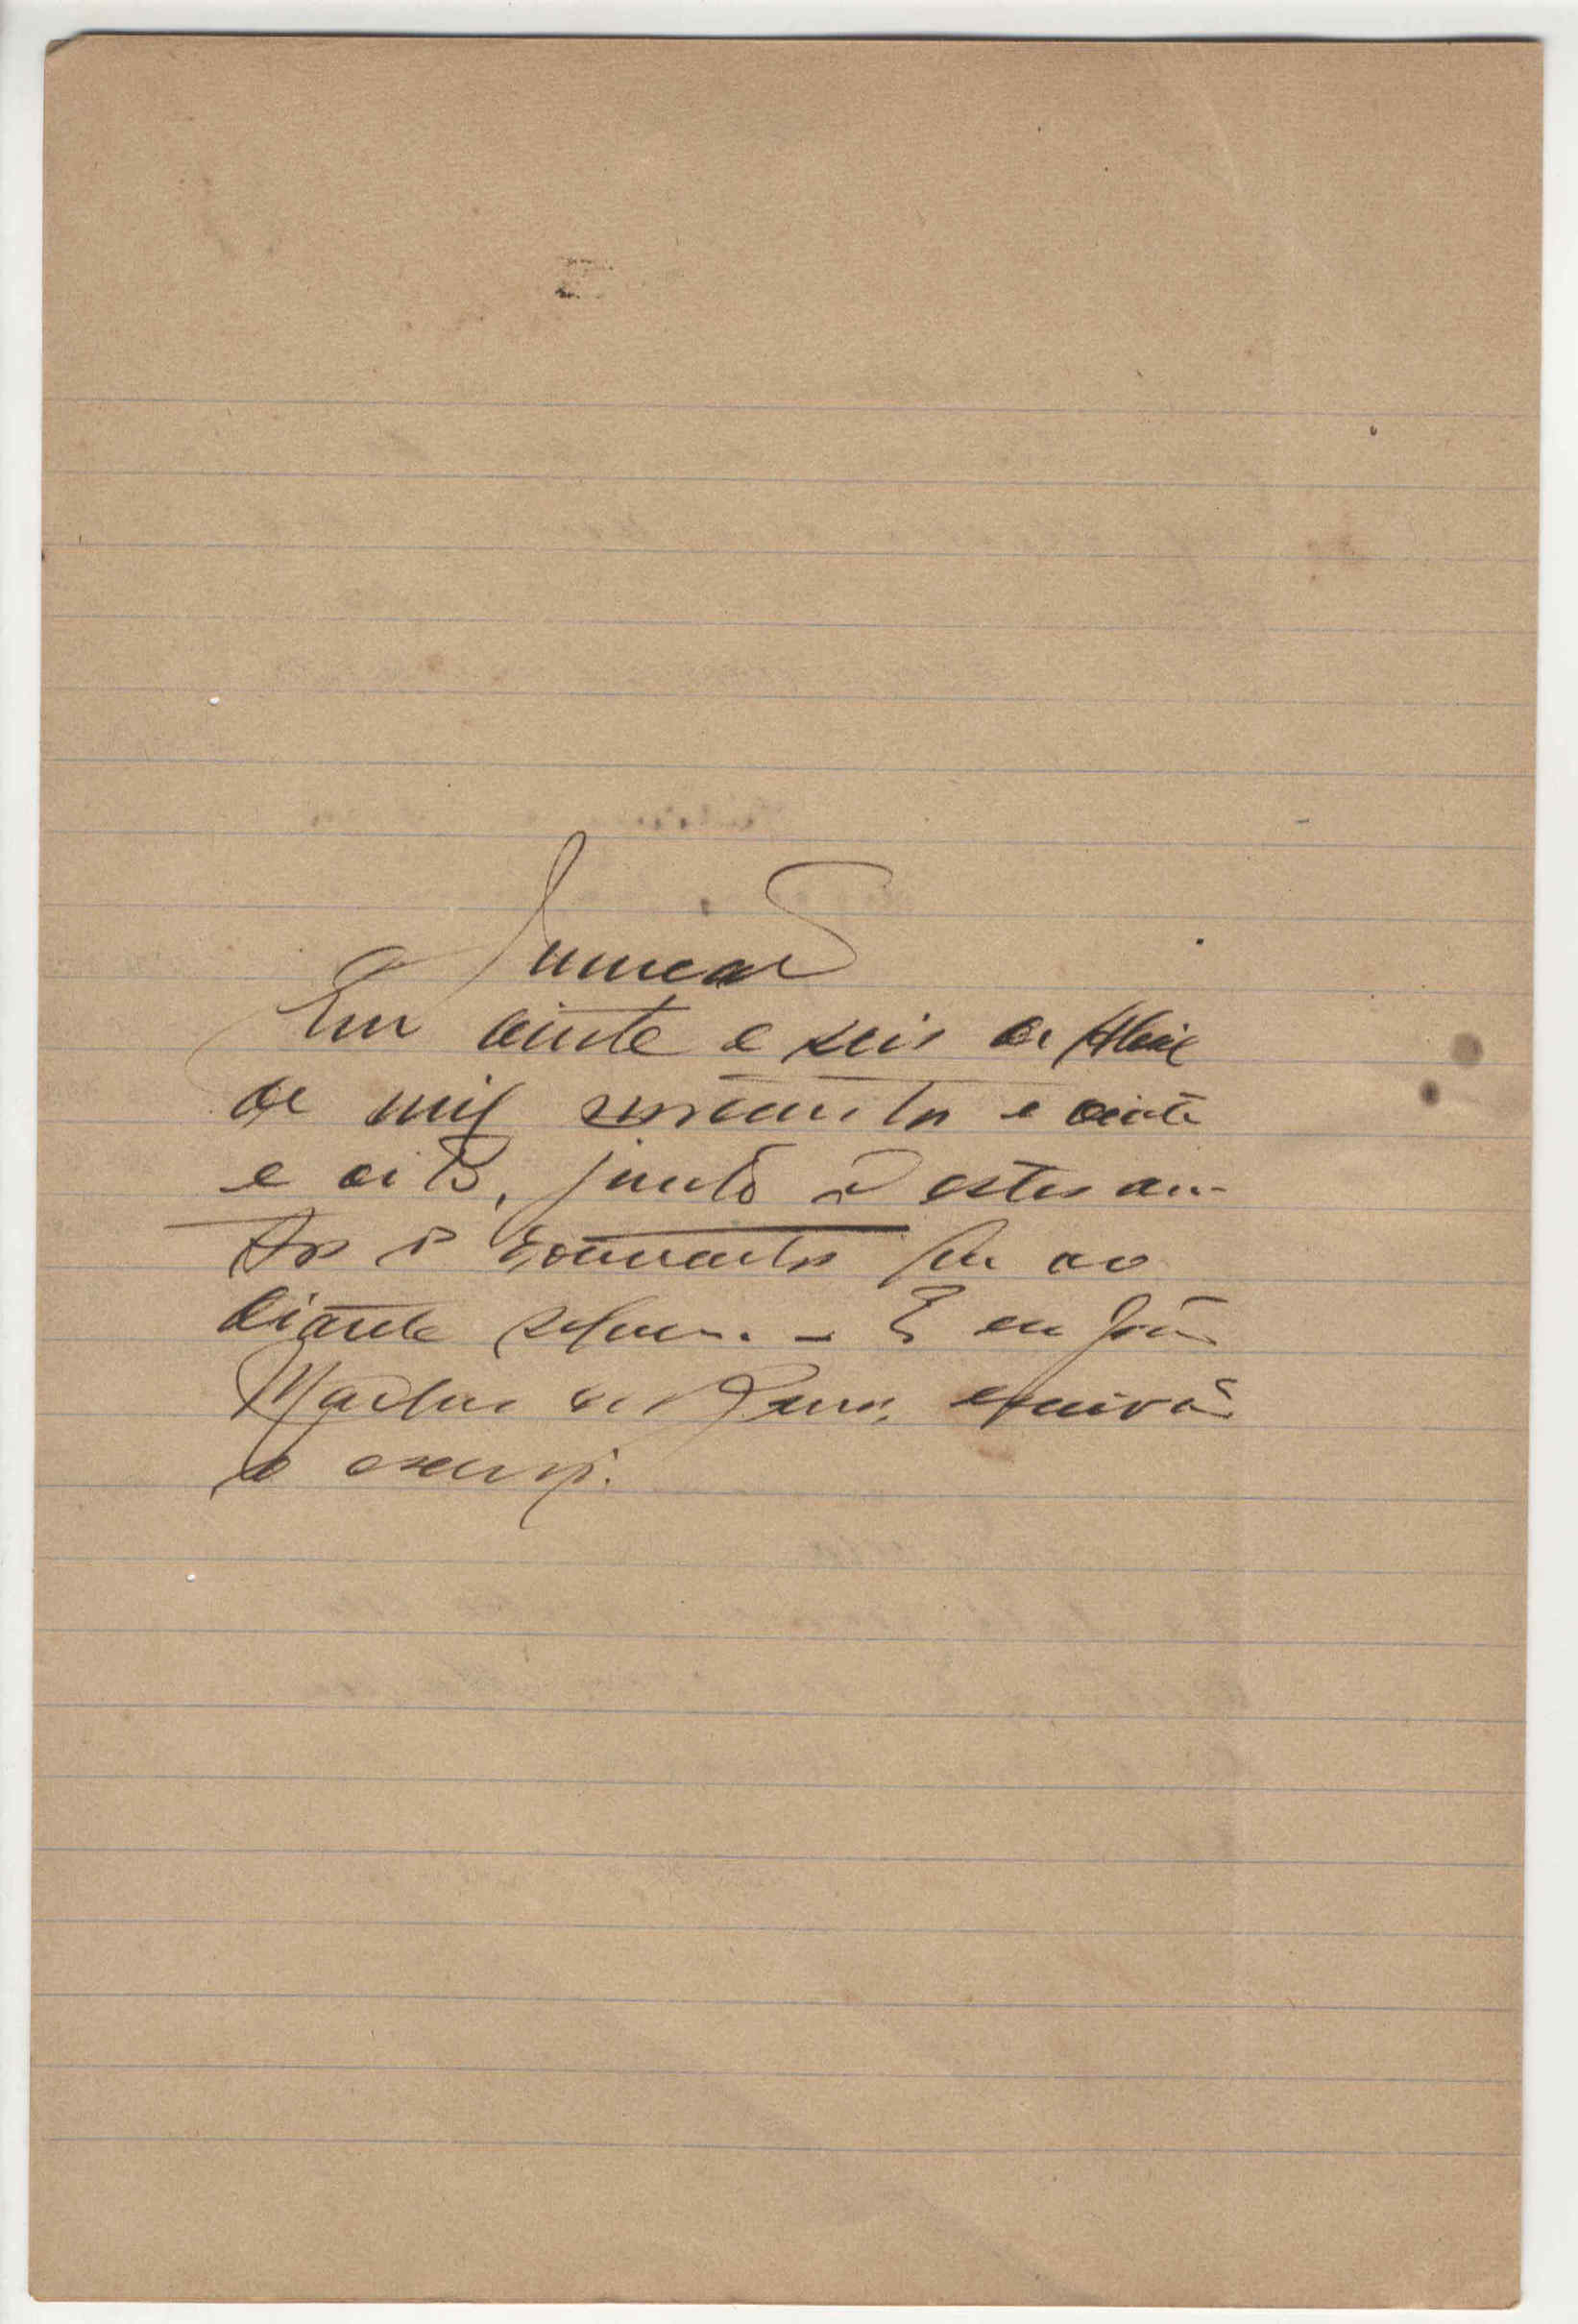 Juntada
Em vinte e seis de Abril
de mil novecentos e vinte
e oito, junto a estes au-
tos os documentos que ao
diante seguem. - E eu João
Martins de escrivão
o escrevi.